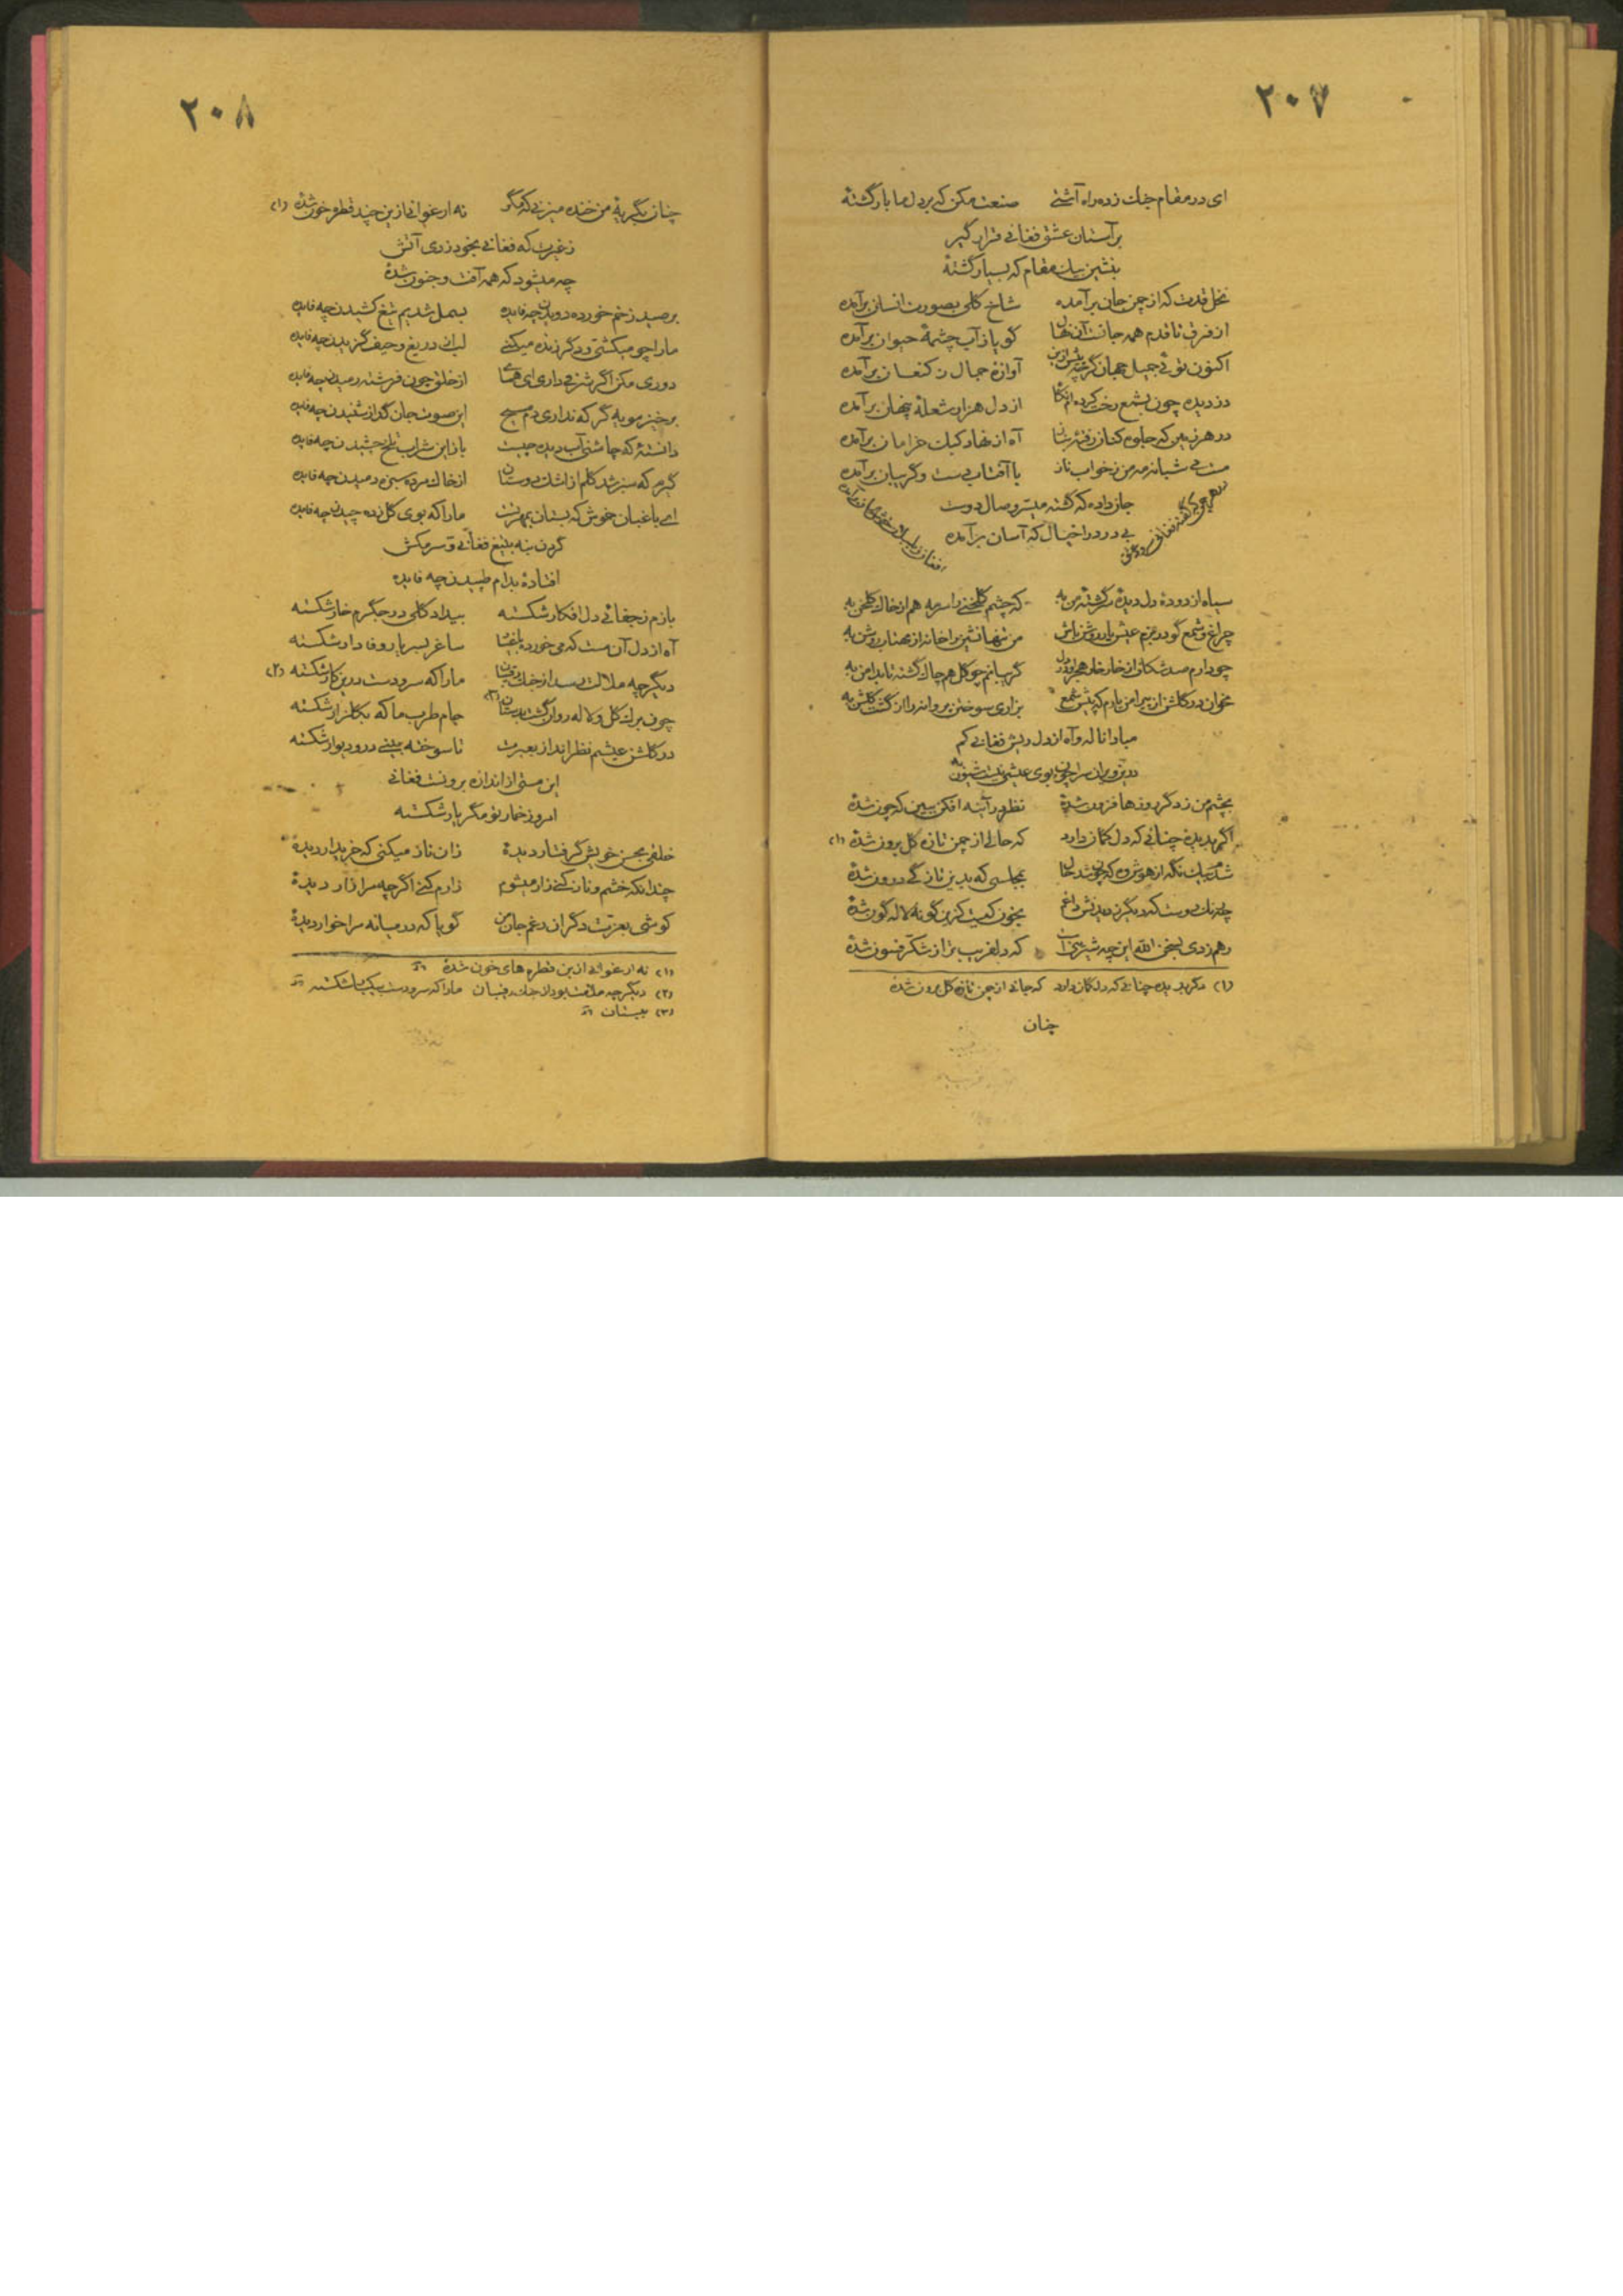 ۲۰۷
ای در مقام جنك زده راه آشتی صنعت مکن که بر دل ما بار گشتهٔ
بر آستان عشق فغانی قرار گیر
بنشین بیك مقام که بسیار گشتهٔ
نخل قدت که از چمن جان برآمده شاخ گلی بصورت انسان برآمده
از فرق تا قدم همه جانست آن نهال گویا ز آب چشمهٔ حیوان برآمده
اکنون توئی جمیل جهان گرچه پیش ازین آوازهٔ جمال ز کنعان برآمده
دزدیده چون بشمع رخت کرده ام نگاه از دل هزار شعلهٔ پنهان برآمده
در هر زمین که جلوه کنان رفته آه از نهاد کبك خرامان برآمده
مست می شبانه مه من ز خواب ناز با آفتاب دست و گریبان برآمده
جان داده که گشته میسر وصال دوست
بی درد را خیال که آسان برآمده
سیاه از دودهٔ دل دیدهٔ سرگشتهٔ من به که چشم گلخنی را سرمه هم از خاك گلخن به
چراغ و شمع گو در بزم عیش یار روشن باش من تنها نشین را خانه از مهتاب روشن به
چو دارم صد شکاف از خار خار هجر او در دل گریبانم چو گل هم چاك گشته تا بدامن به
مخوان در گلشن از پیرامن یارم که پیش شمع بزاری سوختن پروانه را از گشت گلشن به
مبادا ناله و آه از دل ریش فغانی کم
درین ویران سرا چون بوی عیشی نیست شیون به
بچشم من ز دگر روزها فزون شدهٔ نظر در آینه افکن ببین که چون شدهٔ
اگر ندیدهٔ چنانی که دل گمان دارد که حالی از چمن تازه گل برون شدهٔ (۱)
بمجلسی که بدین نازگی درون شدهٔ
بخون کیست کزین گونه لاله گون شدهٔ
رهم زدی بسخن الله این چه شیرینی است که دلفریب تر از شکر فسون شدهٔ
(۱) مگر ندیده چنانی که دل گمان دارد که جانی از چمن تازه گل برون شدهٔ
چنان
۲۰۸
چنان بگریهٔ من خنده میزنی که مگو نه ارغوانی ازین چند قطره خون شدهٔ (۱)
ز غیرت که فغانی بخود زدی آتش
چه میشود که همه آفت و جنون شدهٔ
بر صید زخم خورده دویدن چه فایده بسمل شدیم تیغ کشیدن چه فایده
ما را چو میکشتی و دگر زنده میکنی لب از دریغ و حیف گزیدن چه فایده
دوری مکن اگر شرفی داری ای همای از خلق چون فرشته رمیدن چه فایده
برخیز مویه گر که نداری دم مسیح این صوت جان گداز شنیدن چه فایده
دانستهٔ که چاشنی آب دیده چیست باز این شراب تلخ چشیدن چه فایده
گیرم که سبز شد گلم از اشك دوستان از خاك مرده سبزه دمیدن چه فایده
ای باغبان خوش که بستان بهر تست ما را که بوی گل زده چیدن چه فایده
گردن بنه بتیغ فغانی و سر مکش
افتادهٔ بدام طپیدن چه فایده
بازم ز جفائی دل افکار شکسته بیداد گلی در جگرم خار شکسته
آه از دل آن مست که می خورده باغیار ساغر بسر یار وفادار شکسته
دیگر چه ملالت رسد از جنك رقیبان ما را که سر و دست درین کار شکسته (۲)
چون برك گل و لاله روان گشت بدستان (۳) جام طرب ما که بگلزار شکسته
در گلشن عیشم نظر انداز بعبرت تا سوخته بینی در و دیوار شکسته
این مستی از اندازه برونست فغانی
امروز خمار تو مگر یار شکسته
خلقی بحسن خویش گرفتار دیدهٔ زان ناز میکنی که خریدار دیدهٔ
چندانکه خشم و ناز کنی زار میشوم زارم کشی اگر چه مرا زار دیدهٔ
کوشی بعزت دگران در غم جان من گویا که در میانه مرا خوار دیدهٔ
(۱) نه ارغوانی ازین قطره های خون شدهٔ
(۲) دیگر چه ملامت بود از جنك رقیبان ما را که سر و دست شکسته
(۳) ببستان